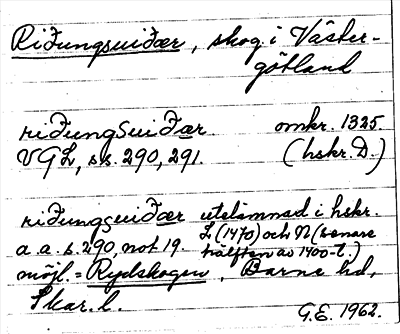 Riðungsuiðær, skog i Väster-
götland
riðungsuiðær omkr. 1325.
VGL, s.s. 290, 291. (hskr. D.)
riðungsuiðær utelämnad i hskr.
L (1470) och N (senare
a. a. s. 290, not 19. hälften av 1400-t.)
möjl. = Rydskogen, Barne hd,
Skar. l.
G.E. 1962.